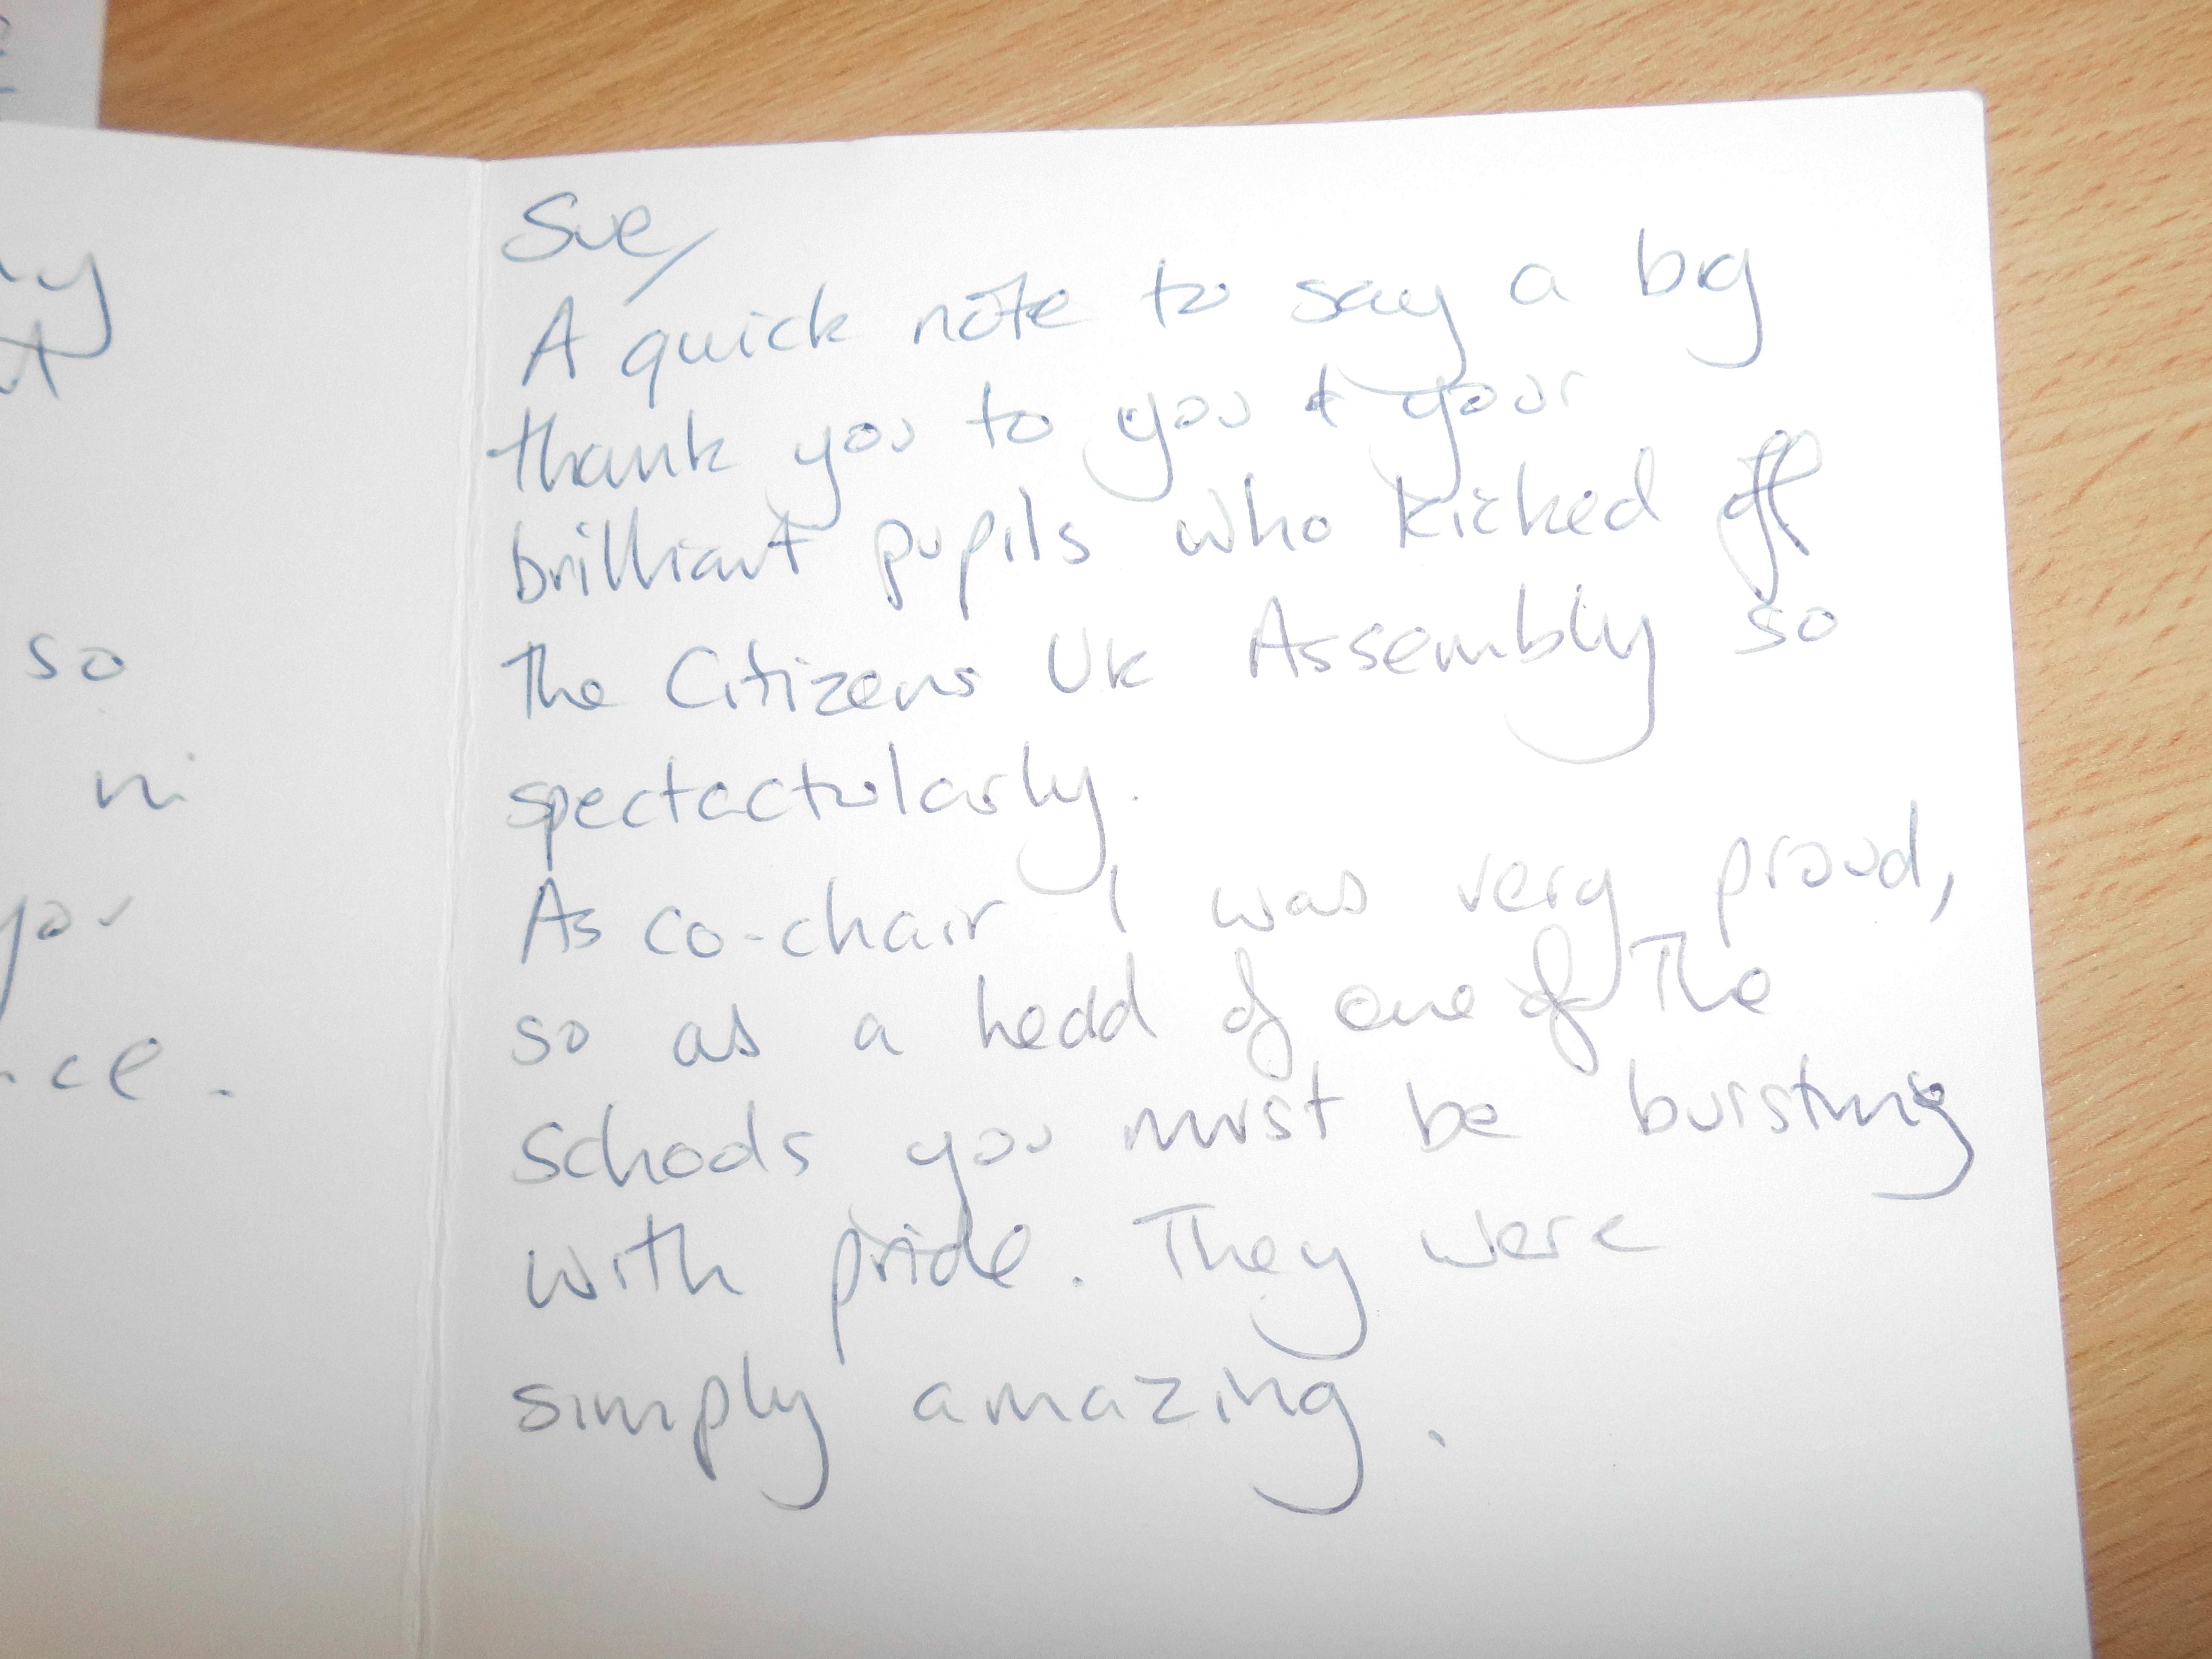 so
you
Sue,
A quick note to say a big
thank you to you & your
brilliant pupils who kicked off
the Citizens UK Assembly so
spectactularly.
As co-chair I was very proud,
so as a head of one of the
schools you must be bursting
with pride. They were
simply amazing.